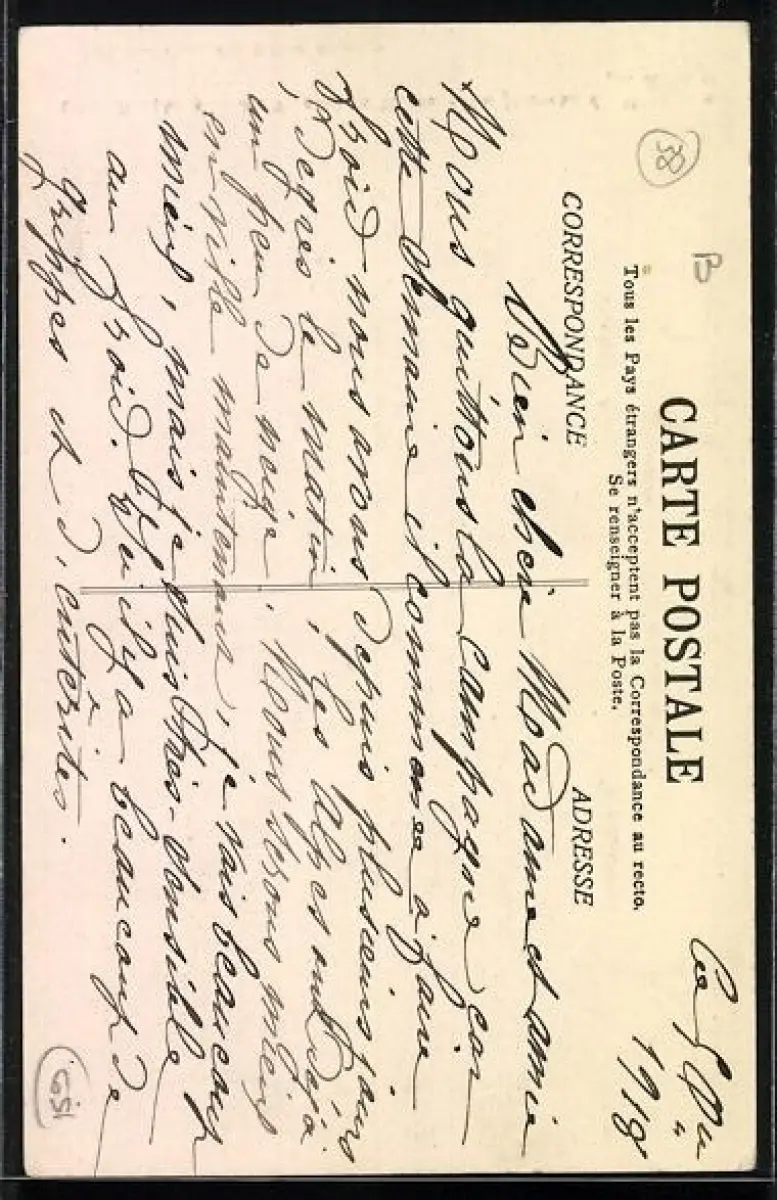 CARTE POSTALE
Tous les Pays étrangers n'acceptent pas la Correspondance au recto.
Se renseigner à la Poste.
CORRESPONDANCE
ADRESSE
38
B
1918
Bien chère Madame et amie
Nous quittons la campagne car
cette semaine il commence à faire
froid nous avons depuis plusieurs jours
degrés le matin, les Alpes ont déjà
un peu de neige. Nous serons mieux
en ville maintenant, je vais beaucoup
mieux, mais je suis très-sensible
au froid. il y a beaucoup de
grippes et d'entérites.